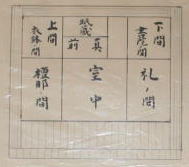 下間
書院間
礼ノ間
眠蔵
真前
室中
上間
衣鉢間
檀那ノ間